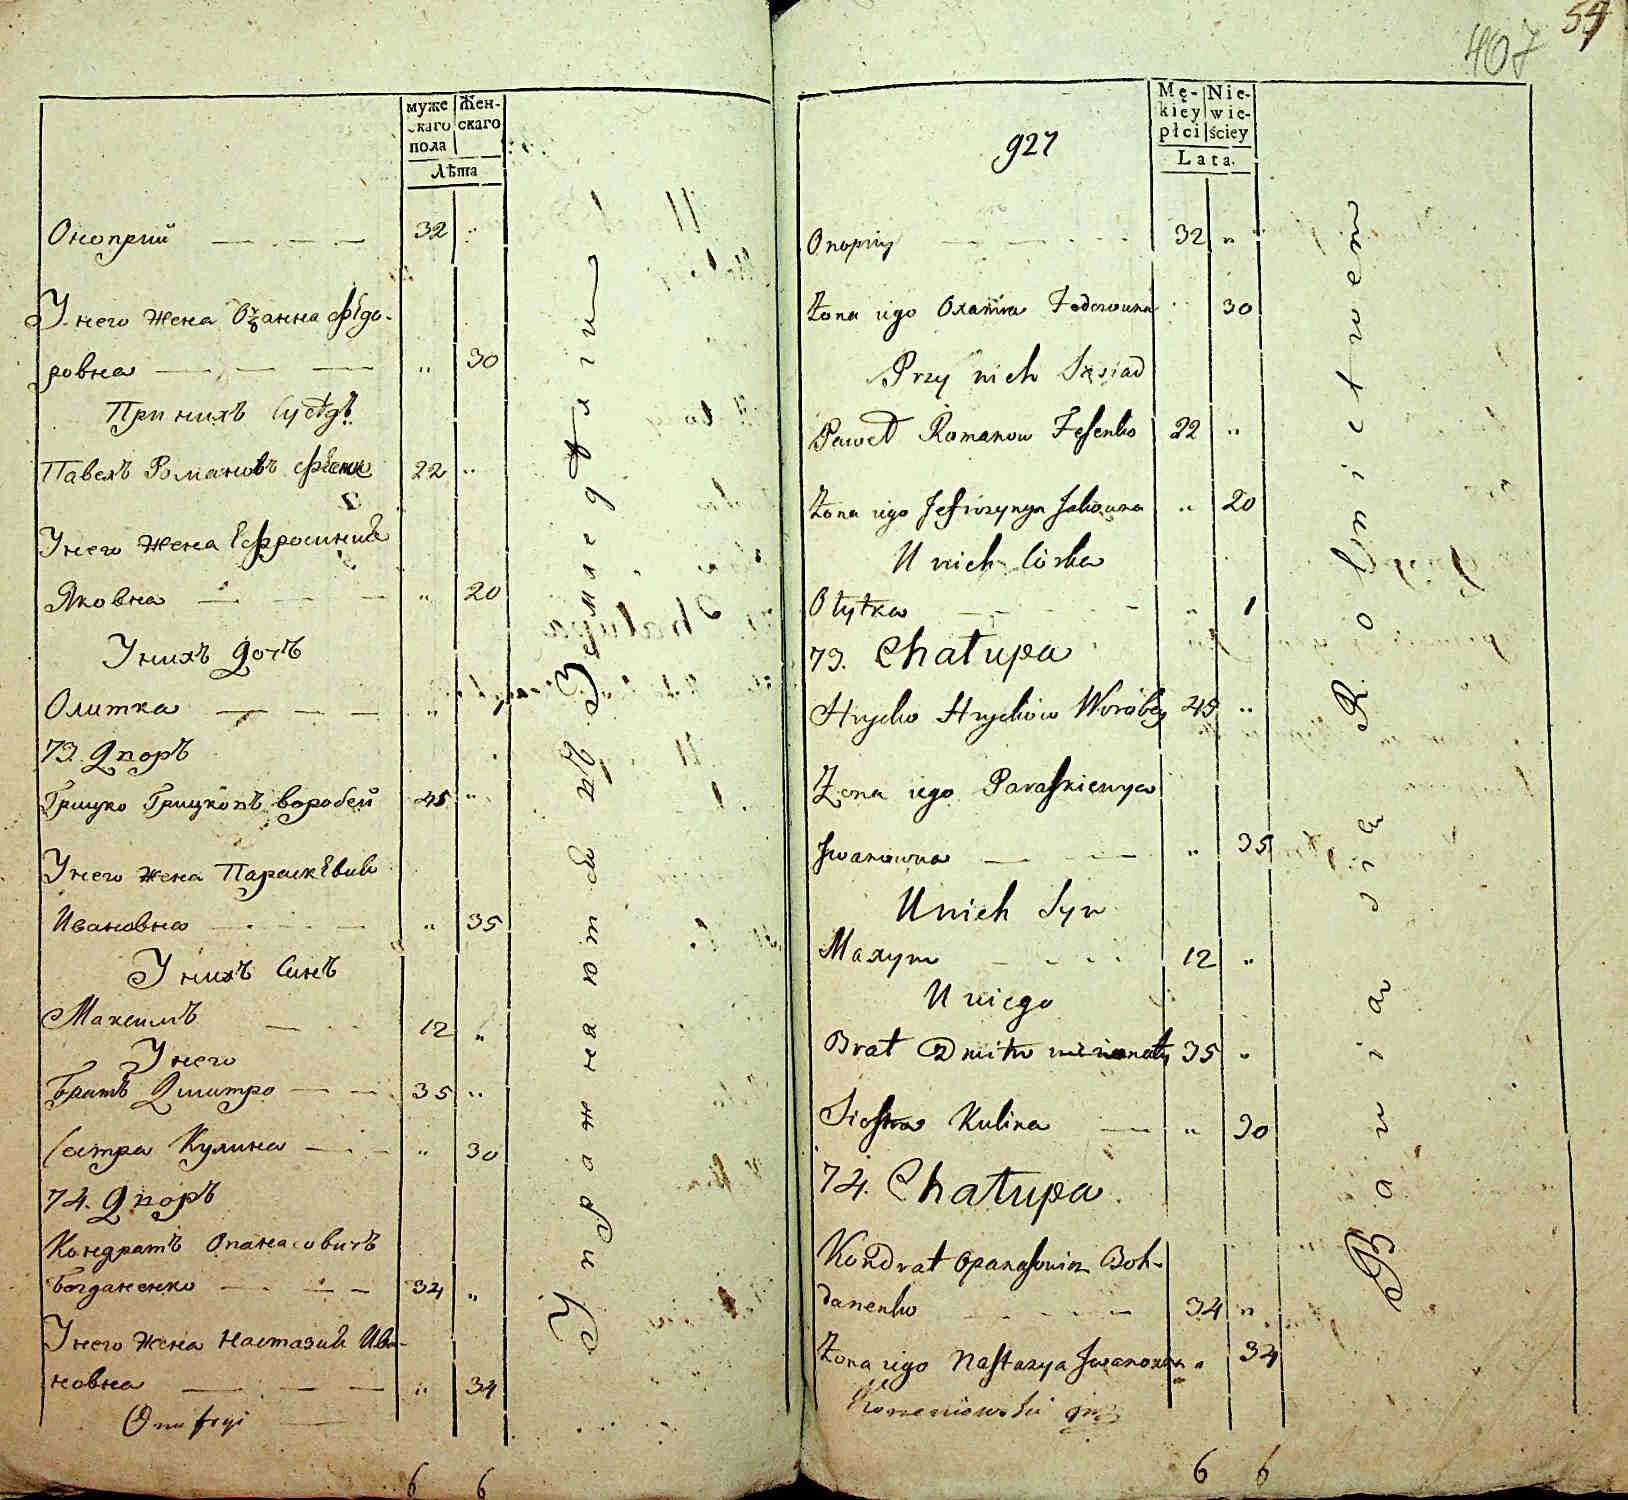 муже
скаго
пола
Жен-
скаго
Лѣта
Оноприй 32 "
У него жена Оѯанна Федо-
ровна " 30
При нихъ Сусѣдъ
Павелъ Романовъ 22 "
У него жена Ефросиния
Яковна " 20
У нихъ дочъ
Олитка "
73. Дворъ
Грицко Грицковъ воробей 45 "
У него жена Параскевия
Ивановна " 35
У нихъ Синъ
Максимъ 12 "
У него
Братъ Дмитро 35 "
Сестра Кулина " 30
74. Дворъ
Кондратъ Опанасовичъ
Богданенко 34 "
У него жена Настазия Ива-
новна " 34
Onufryi
6 6
Упражняются въ Земледѣлии
54
407
927
Mę-
kiey
płci
Nie-
wie-
ściey
Lata.
Onopriy 32 "
Żona iego Oxanna Fedorowna 30
Przy nich Sąsiad
Paweł Romanow Fesenko 22 "
Żona iego Jefrozynya Jakowna " 20
U nich Córka
Ołytka " 1
73. Chałupa
Hrycko Hryckow Worobey 45 "
Żona iego Paraskiewya
Jwanowna " 35
U nich Syn
Maxym 12 "
U niego
Brat Dmitro nieżonaty 35 "
Siostra Kulina " 30
74. Chałupa
Kondrat Opanasowicz Boh-
danenko 34 "
Żona iego Nastazya Jwanowna " 34
Korzeniowski
6 6
Bawią się Rolnictwem